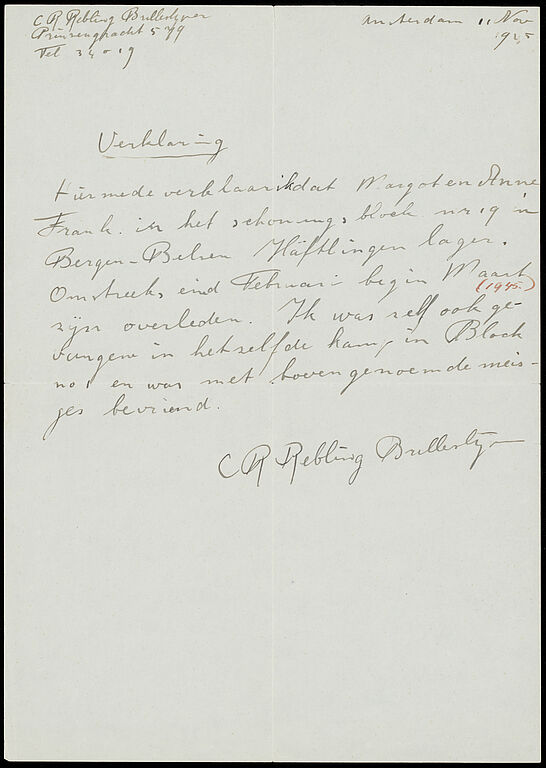 C R Rebling Brilleslyper
Prinsengracht 579
Tel 34019
Amsterdam 11 Nov
1945
Verklaring
Hiermede verklaar ik dat Margot en Anne
Frank in het schonungsblock nr 19 in
Bergen-Belsen Häftlingen lager.
Omstreeks eind Februari begin Maart
(1945.)
zijn overleden. Ik was zelf ook ge-
vangene in hetzelfde kamp in Block
no 1 en was met bovengenoemde meis-
jes bevriend.
C R Rebling Brilleslyper